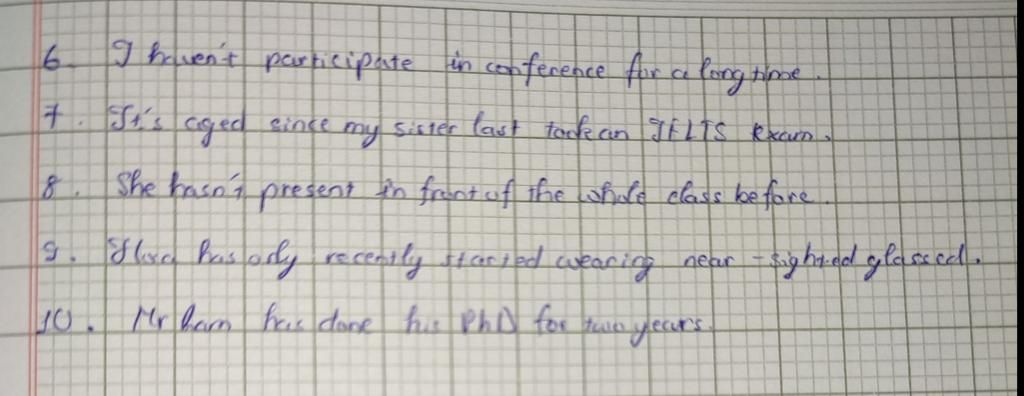 6. I haven't participate in conference for a long time.
7. It's aged since my sister last took an IELTS exam.
8. She hasn't present in front of the whole class before.
9. has only recently started wearing near-sighted glassed.
10. Mr has done his PhD for two years.